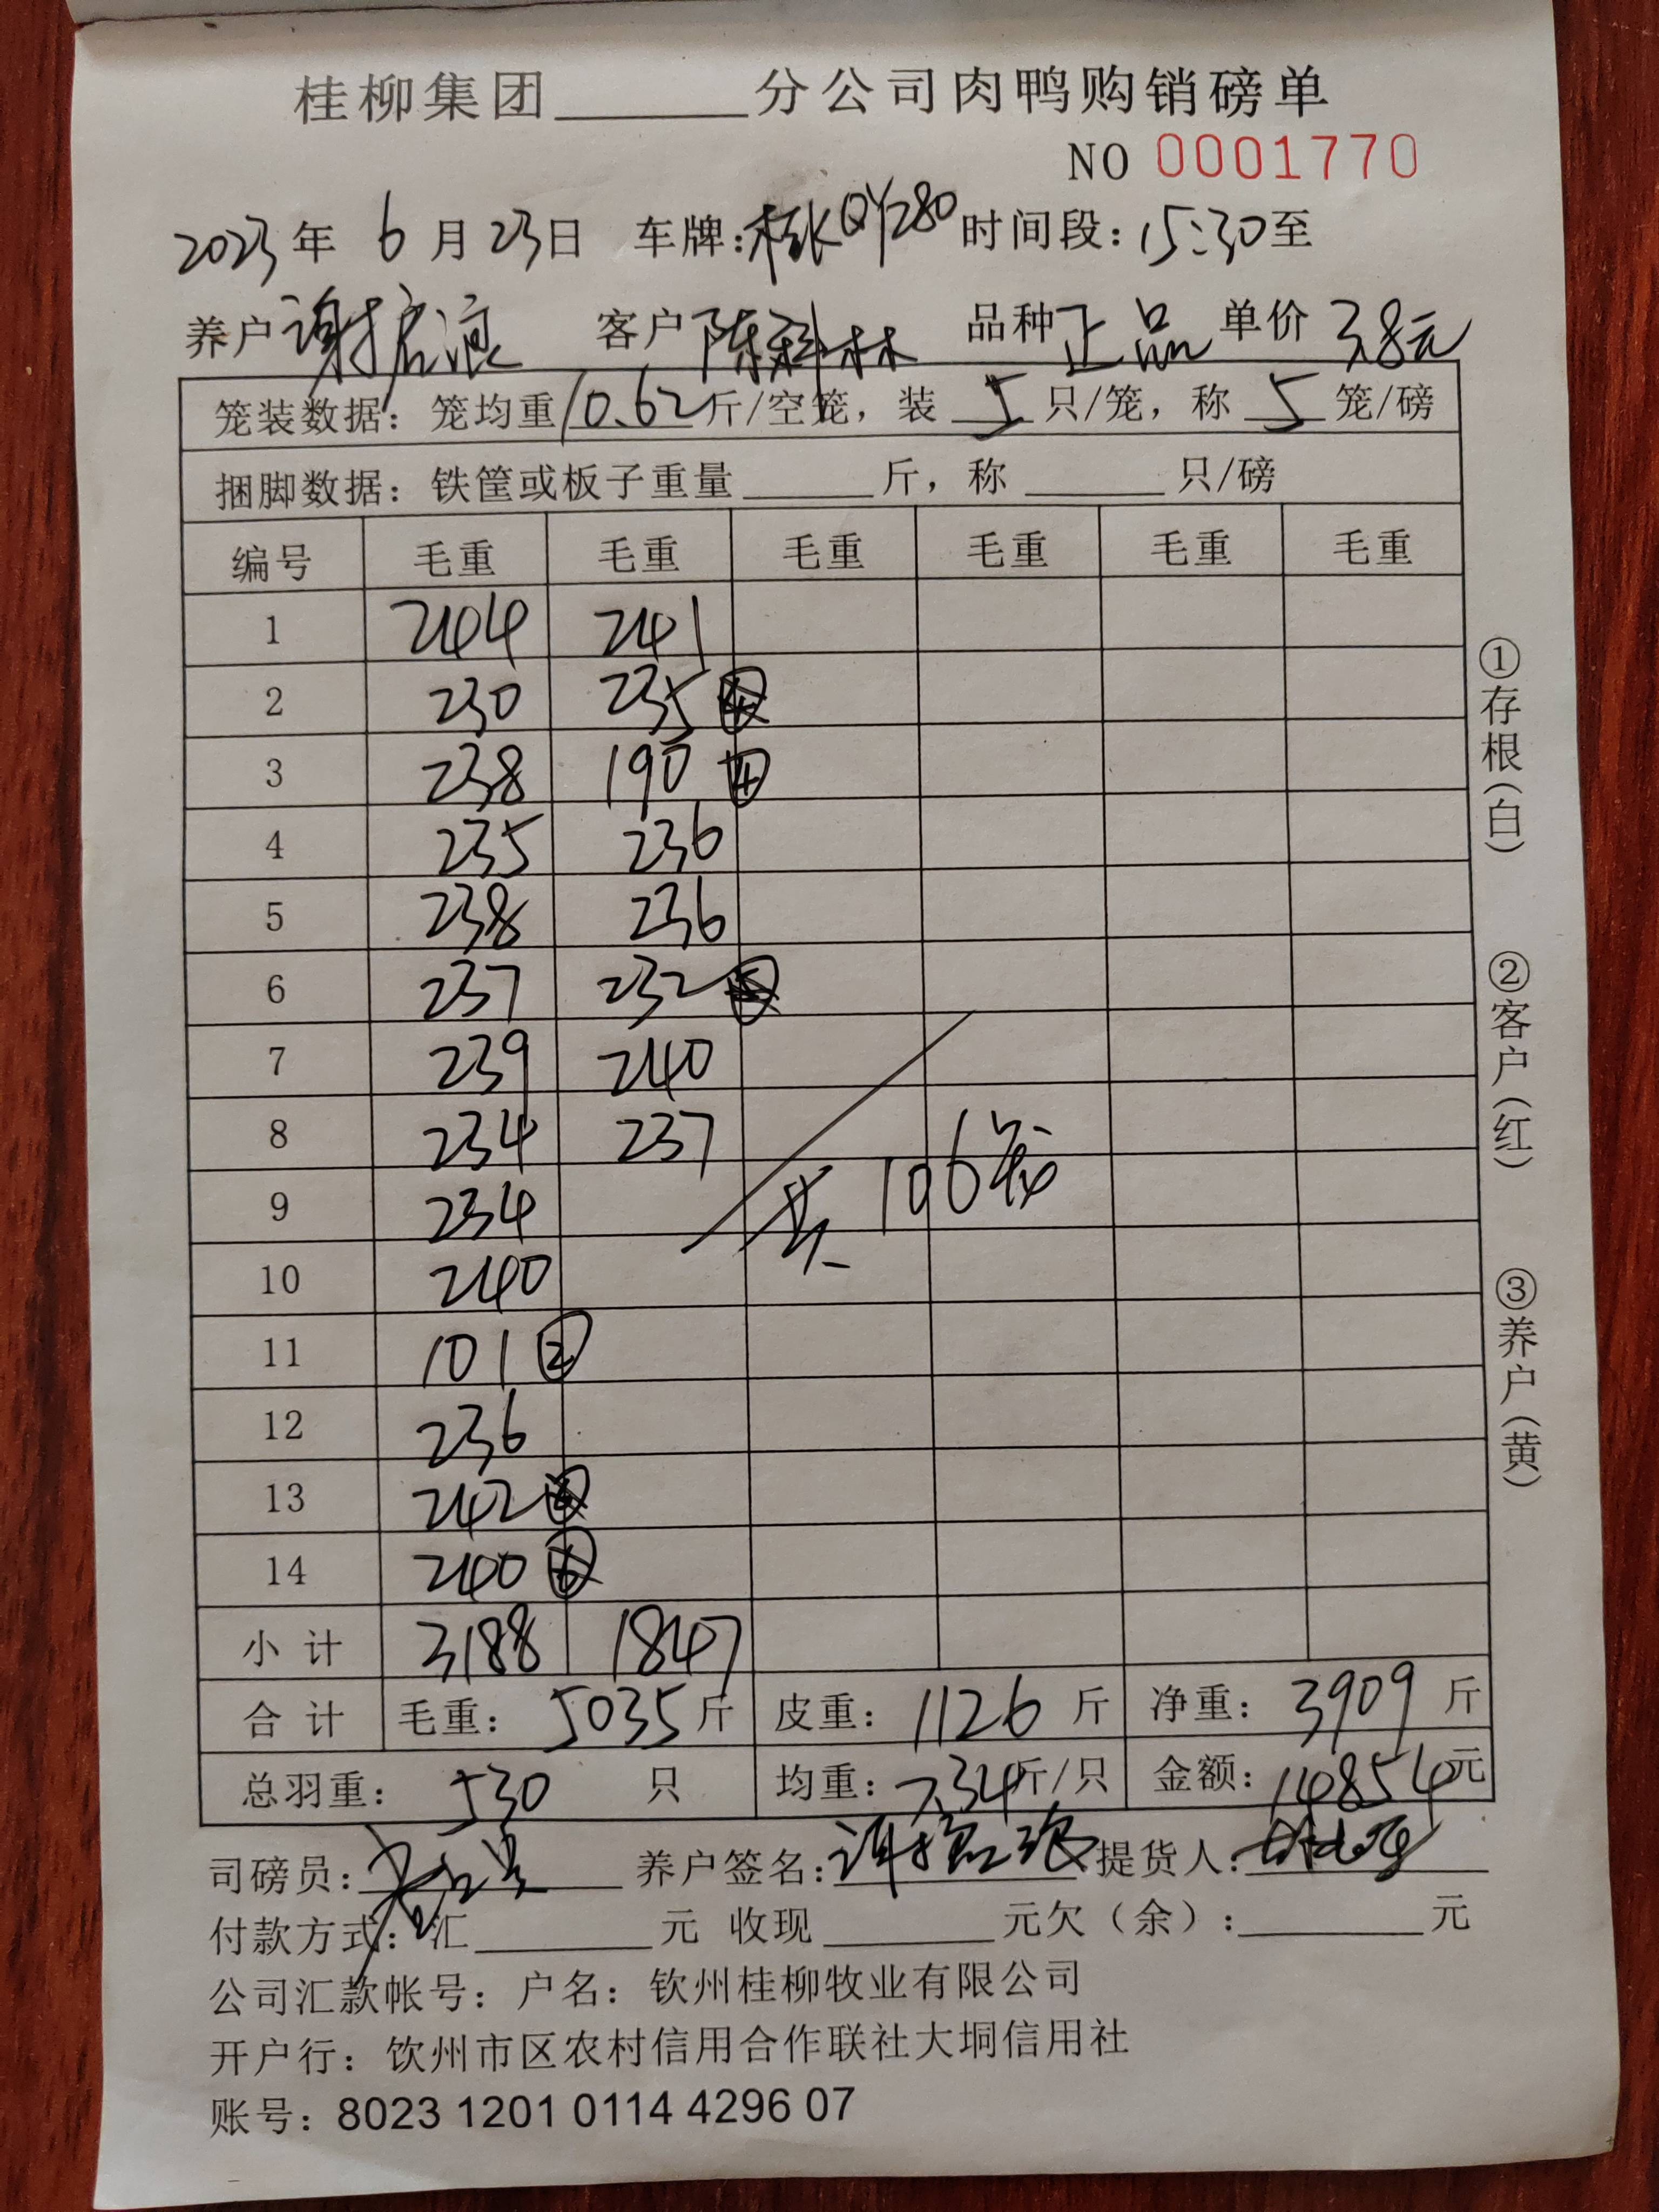 桂柳集团______分公司肉鸭购销磅单
NO 0001770
2023年 6月23日 车牌:桂QY280 时间段:15:30至
养户 谢 客户 陈科林 品种 正品 单价 3.8元
笼装数据:笼均重10.62斤/空笼,装 5 只/笼,称 5 笼/磅
捆脚数据:铁筐或板子重量______斤,称______只/磅
编号 毛重 毛重 毛重 毛重 毛重 毛重
1 244 241
2 230 235
3 238 190 ④
4 235 236
5 238 236
6 237 232
7 239 240
8 234 237
9 234 共106笼
10 240
11 101 ②
12 236
13 242
14 240
小计 3188 1847
合计 毛重:5035斤 皮重:1126斤 净重:3909斤
总羽重:530 只 均重:7.34斤/只 金额:14854元
司磅员: 养户签名:谢 提货人:
付款方式:汇______元 收现______元欠(余):______元
公司汇款帐号:户名:钦州桂柳牧业有限公司
开户行:钦州市区农村信用合作联社大垌信用社
账号:8023 1201 0114 4296 07
①存根(白)
②客户(红)
③养户(黄)